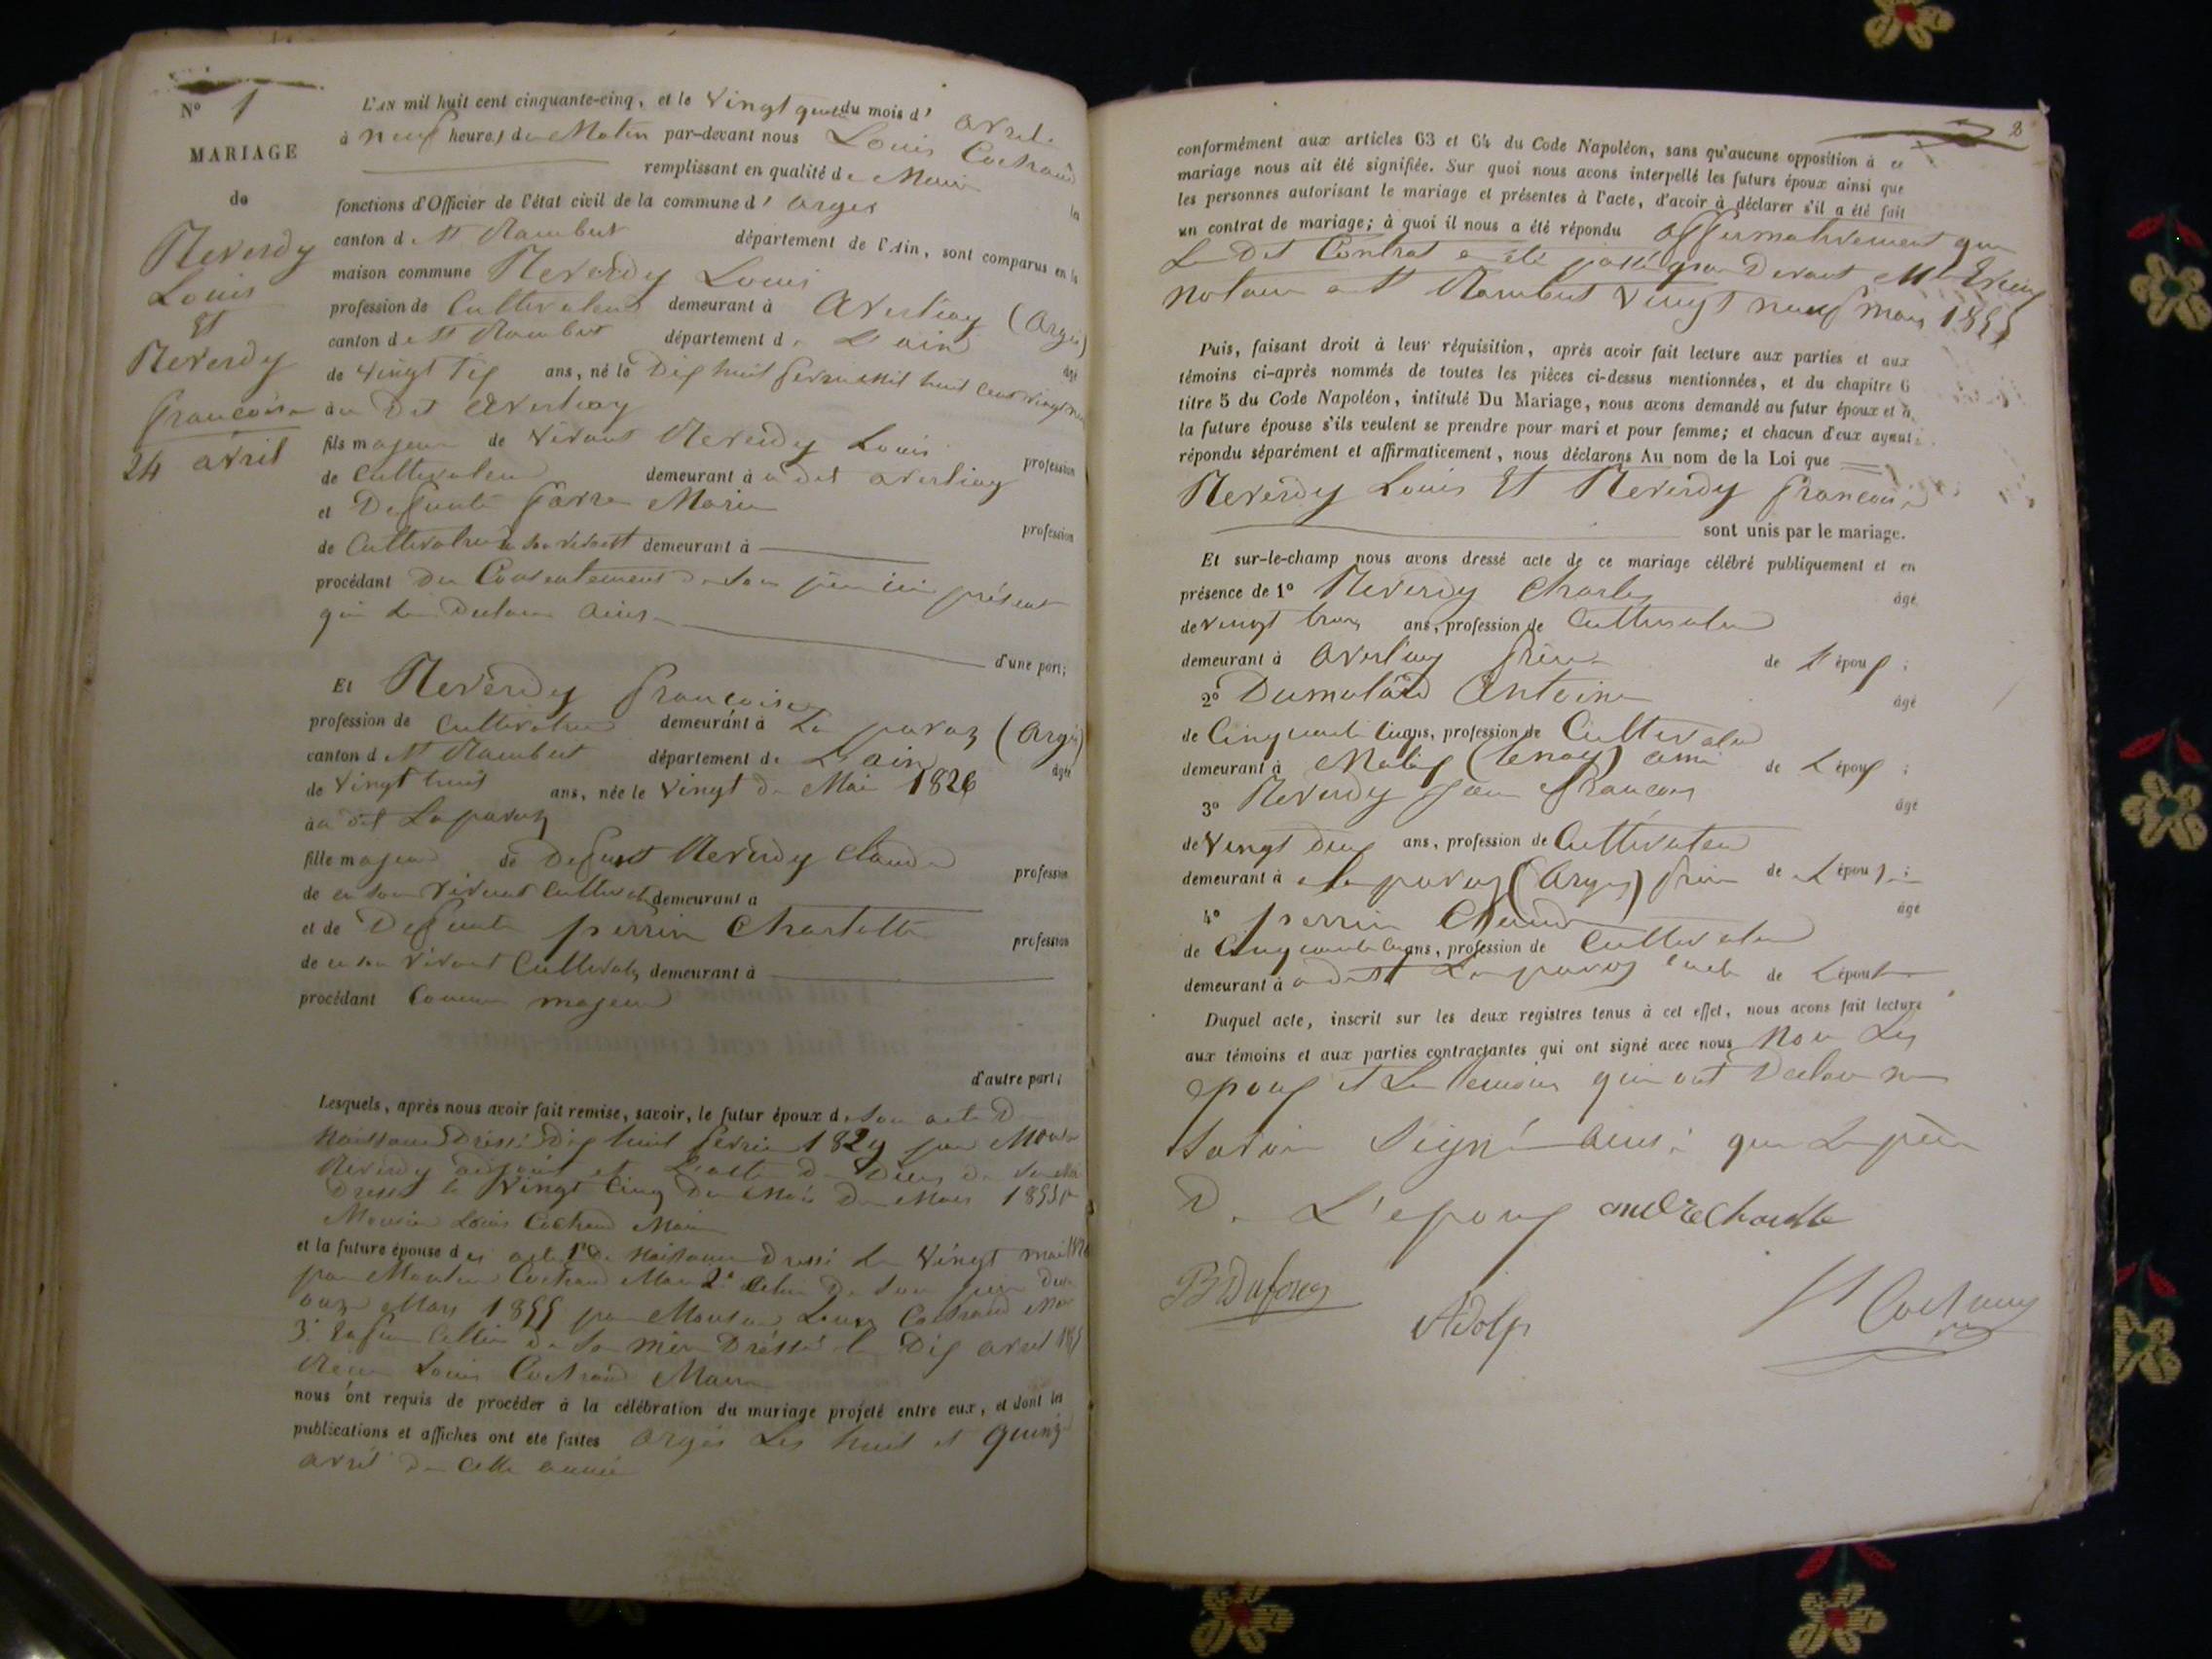 N° 1
MARIAGE
de
Reverdy
Louis
Et
Reverdy
françoise
24 avril
L'AN mil huit cent cinquante-cinq, et le Vingt quatre du mois d' avril
à neuf heures du Matin par-devant nous Louis Cochaud
remplissant en qualité de Maire la
fonctions d'Officier de l'état civil de la commune d' Argis
canton de St Rambert département de l'Ain, sont comparus en la
maison commune Reverdy Louis
profession de Cultivateur demeurant à Averliaz (Argis)
canton de St Rambert département de L'ain âgé
de Vingt Six ans, né le Dix huit fevrier Mil huit Cent vingt neuf
au Dit Averliaz
fils majeur de Vivant Reverdy Louis profession
de Cultivateur demeurant à au dit averliaz
et Defunte Marie profession
de Cultivatrice de son vivant demeurant à
procédant Du Consentement de son père ici présent
qui Le Declare ainsi
d'une part;
Et Reverdy françoise
profession de Cultivatrice demeurant à La pavaz (Argis)
canton de St Rambert département de L'ain âgée
de Vingt huit ans, née le Vingt de Mai 1826
au dit Lapavaz
fille majeure de Defunt Reverdy Claude profession
de en son Vivant Cultivateur demeurant à
et de Defunte perrin Charlotte profession
de en son Vivant Cultivatrice demeurant à
procédant Comme majeure
d'autre part;
Lesquels, après nous avoir fait remise, savoir, le futur époux de son acte De
Naissance Dressé Dix huit fevrier 1829 par Monsieur
Reverdy adjoint et L'acte De Décès De sa Mère
Dressé le Vingt Cinq Du Mois De Mars 1855 par
Monsieur Louis Cochaud Maire
et la future épouse des acte 1° De Naissance Dressé Le Vingt mai 1826
par Monsieur Cochaud Maire 2° Celui De son père Du
onze Mars 1855 par Monsieur Louis Cochaud Maire
3° Enfin Celui De sa mère Dressé le Dix avril
Louis Cochaud Maire
nous ont requis de procéder à la célébration du mariage projeté entre eux, et dont les
publications et affiches ont été faites Argis Les huit et Quinze
avril De Cette année
2
conformément aux articles 63 et 64 du Code Napoléon, sans qu'aucune opposition à ce
mariage nous ait été signifiée. Sur quoi nous avons interpellé les futurs époux ainsi que
les personnes autorisant le mariage et présentes à l'acte, d'avoir à déclarer s'il a été fait
un contrat de mariage; à quoi il nous a été répondu affirmativement que
Le Dit Contrat a été passé par Devant Me
Notaire a St Rambert Vingt neuf mars 1855
Puis, faisant droit à leur réquisition, après avoir fait lecture aux parties et aux
témoins ci-après nommés de toutes les pièces ci-dessus mentionnées, et du chapitre 6
titre 5 du Code Napoléon, intitulé Du Mariage, nous avons demandé au futur époux et à
la future épouse s'ils veulent se prendre pour mari et pour femme; et chacun d'eux ayant
répondu séparément et affirmativement, nous déclarons Au nom de la Loi que
Reverdy Louis Et Reverdy françoise
sont unis par le mariage.
Et sur-le-champ nous avons dressé acte de ce mariage célébré publiquement et en
présence de 1° Reverdy Charles âgé
de Vingt trois ans, profession de Cultivateur
demeurant à Averliaz frère de L'époux;
2° Dumolard Antoine âgé
de Cinquante Cinq ans, profession de Cultivateur
demeurant à (tenay) ami de L'époux;
3° Reverdy Jean François âgé
de Vingt Deux ans, profession de Cultivateur
demeurant à La pavaz (Argis) frère de L'épouse;
4° perrin Claude âgé
de Cinquante Cinq ans, profession de Cultivateur
demeurant à au dit La pavaz oncle de L'épouse
Duquel acte, inscrit sur les deux registres tenus à cet effet, nous avons fait lecture
aux témoins et aux parties contractantes qui ont signé avec nous Non Les
epoux et Les temoins qui ont Declaré ne
Savoir Signé ainsi que Le père
De L'epoux
Adolp
Cochaud